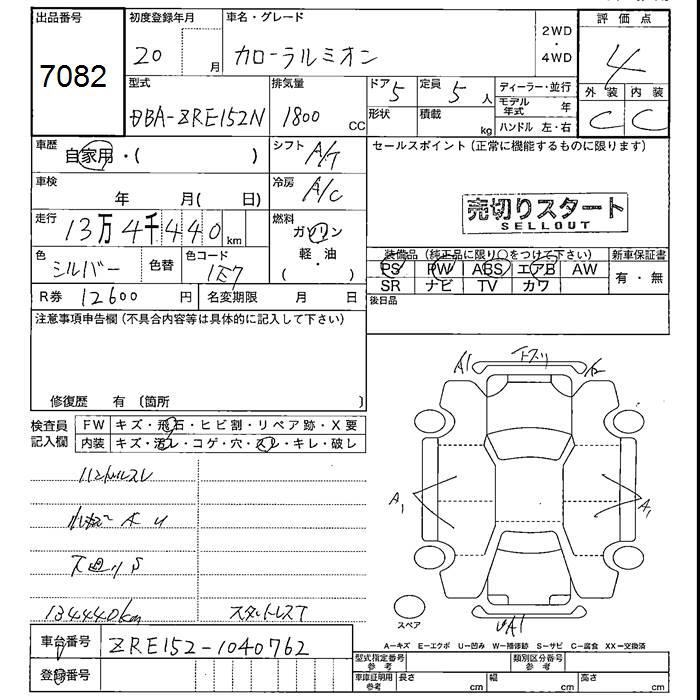 出品番号
7082
初度登録年月
20 月
車名・グレード
カローラルミオン
2WD
・
4WD
評価点
4
外装 内装
C C
型式
DBA-ZRE152N
排気量
1800 CC
ドア 5
形状
定員 5 人
積載 kg
ディーラー・並行
モデル年式 年
ハンドル 左・右
車歴
自家用・( )
シフト A/T
セールスポイント(正常に機能するものに限ります)
車検
年 月( 日)
冷房 A/C
売切りスタート
SELLOUT
走行
13万4千440km
燃料
ガソリン
軽・油
( )
色
シルバー
色替
色コード
1E7
装備品(純正品に限り○をつけて下さい)
新車保証書
PS PW ABS エアB AW
SR ナビ TV カワ
有・無
R券 12600 円
名変期限 月 日
後日品
注意事項申告欄(不具合内容等は具体的に記入して下さい)
修復歴 有(箇所 )
検査員
記入欄
FW キズ・飛石・ヒビ割・リペア跡・X要
内装 キズ・汚レ・コゲ・穴・スレ・キレ・破レ
A1
A1 A1
134440km
スペア
A1
車台番号 ZRE152-1040762
登録番号
A-キズ E-エクボ U-凹み W-補修跡 S-サビ C-腐食 XX-交換済
型式指定番号
参考
類別区分番号
参考
車庫証明用
参考
長さ cm 幅 cm 高さ cm